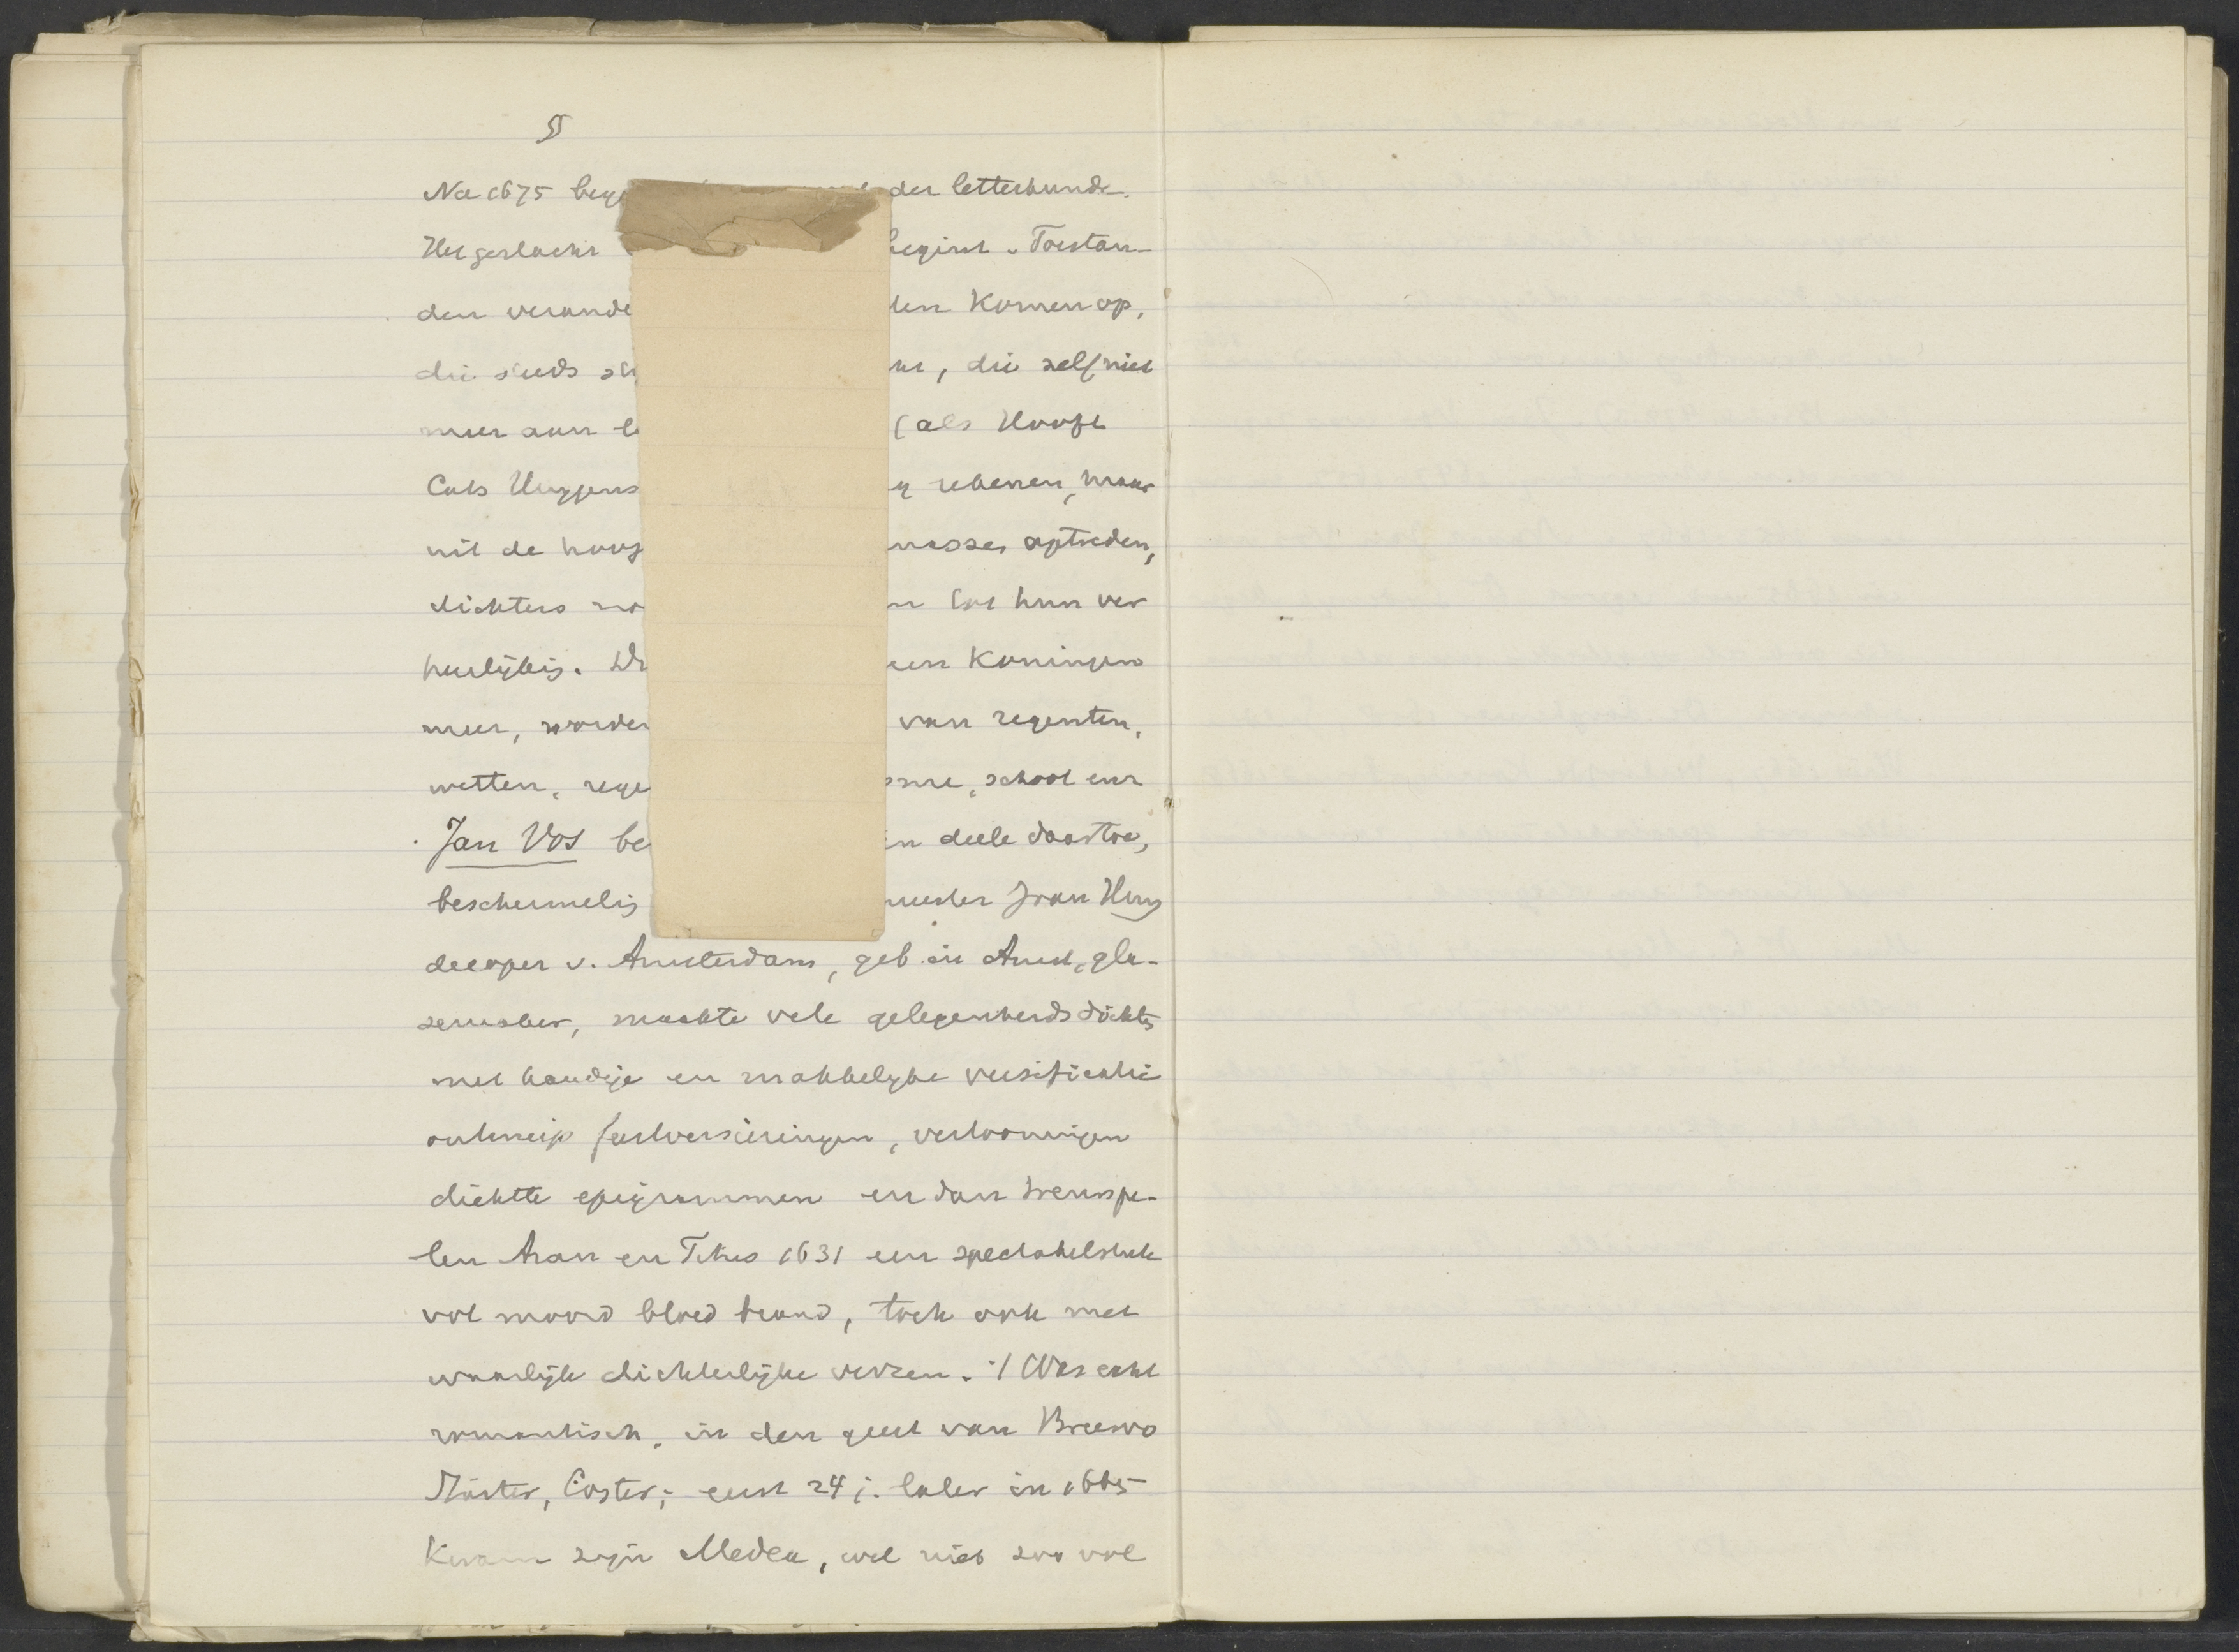 55
Na 1675 der letterkunde.
Het geslacht begint. Toestan-
den verande komen op,
die steeds , die zelf niet
meer aan (als Hooft
Cats Huygens rekenen, maar
uit de hoog optreden,
dichters tot hun ver
heerlijkig. Koningen
meer, worden van regenten,
wetten, rege school en
Jan Vos be deele daartoe,
beschermelig Joan Huy
decoper v. Amsterdam, geb in Amst, gla-
zemaker, maakte vele gelegenheidsdichtz
met handige en makkelijke versificatie
ontwierp feestversieringen, vertooningen
dichtte epigrammen en dan treurspe-
len Aran en Titus 1631 een spectakelstuk
vol moord bloed brand, toch ook met
waarlijk dichterlijke verzen. 't Was echt
romantisch, in den geest van Breero
Coster; eerst 24 j. later in 1665
Kwam zijn Medea, wel niet zoo vol